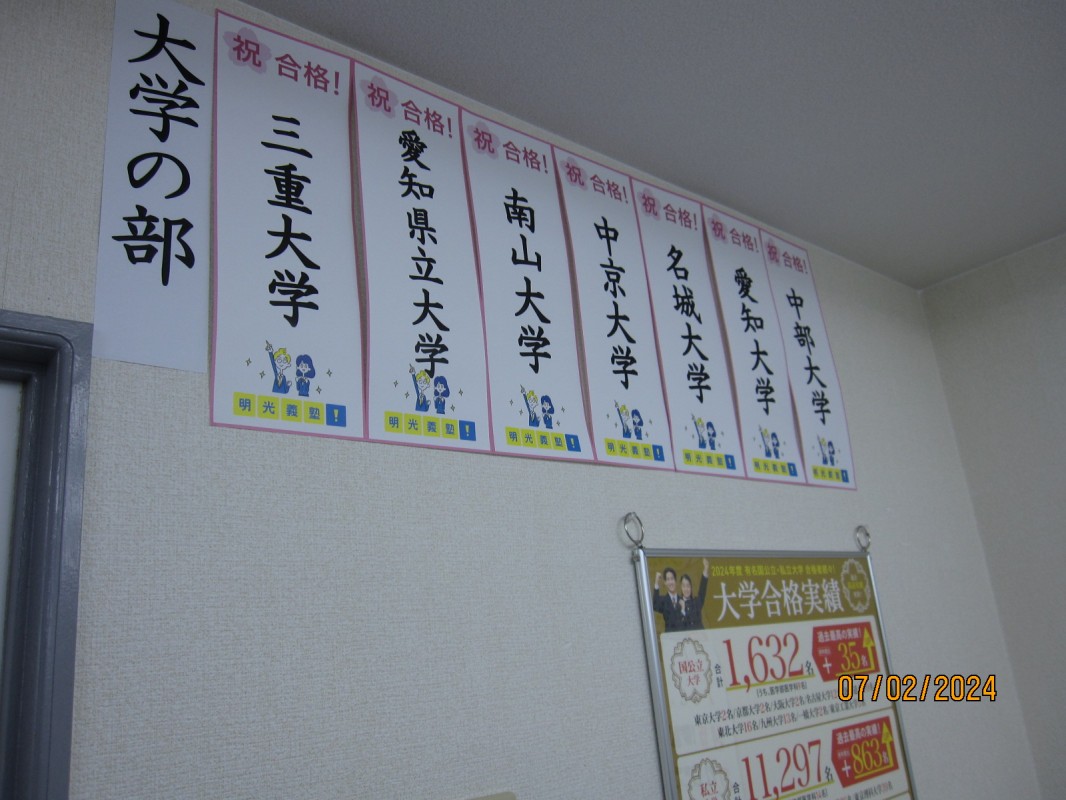 大学の部
祝 合格!
三重大学
明光義塾!
祝 合格!
愛知県立大学
明光義塾!
祝 合格!
南山大学
明光義塾!
祝 合格!
中京大学
明光義塾!
祝 合格!
名城大学
明光義塾!
祝 合格!
愛知大学
明光義塾!
祝 合格!
中部大学
明光義塾!
2024年度 有名国公立・私立大学 合格者続々!
大学合格実績
国公立大学
合計
1,632名
過去最高の実績!
+35名
東京大学2名/京都大学2名/大阪大学2名/名古屋大学
東北大学16名/九州大学13名/一橋大学2名/東京工業大学
私立
合計
11,297名
過去最高の実績!
+863名
07/02/2024